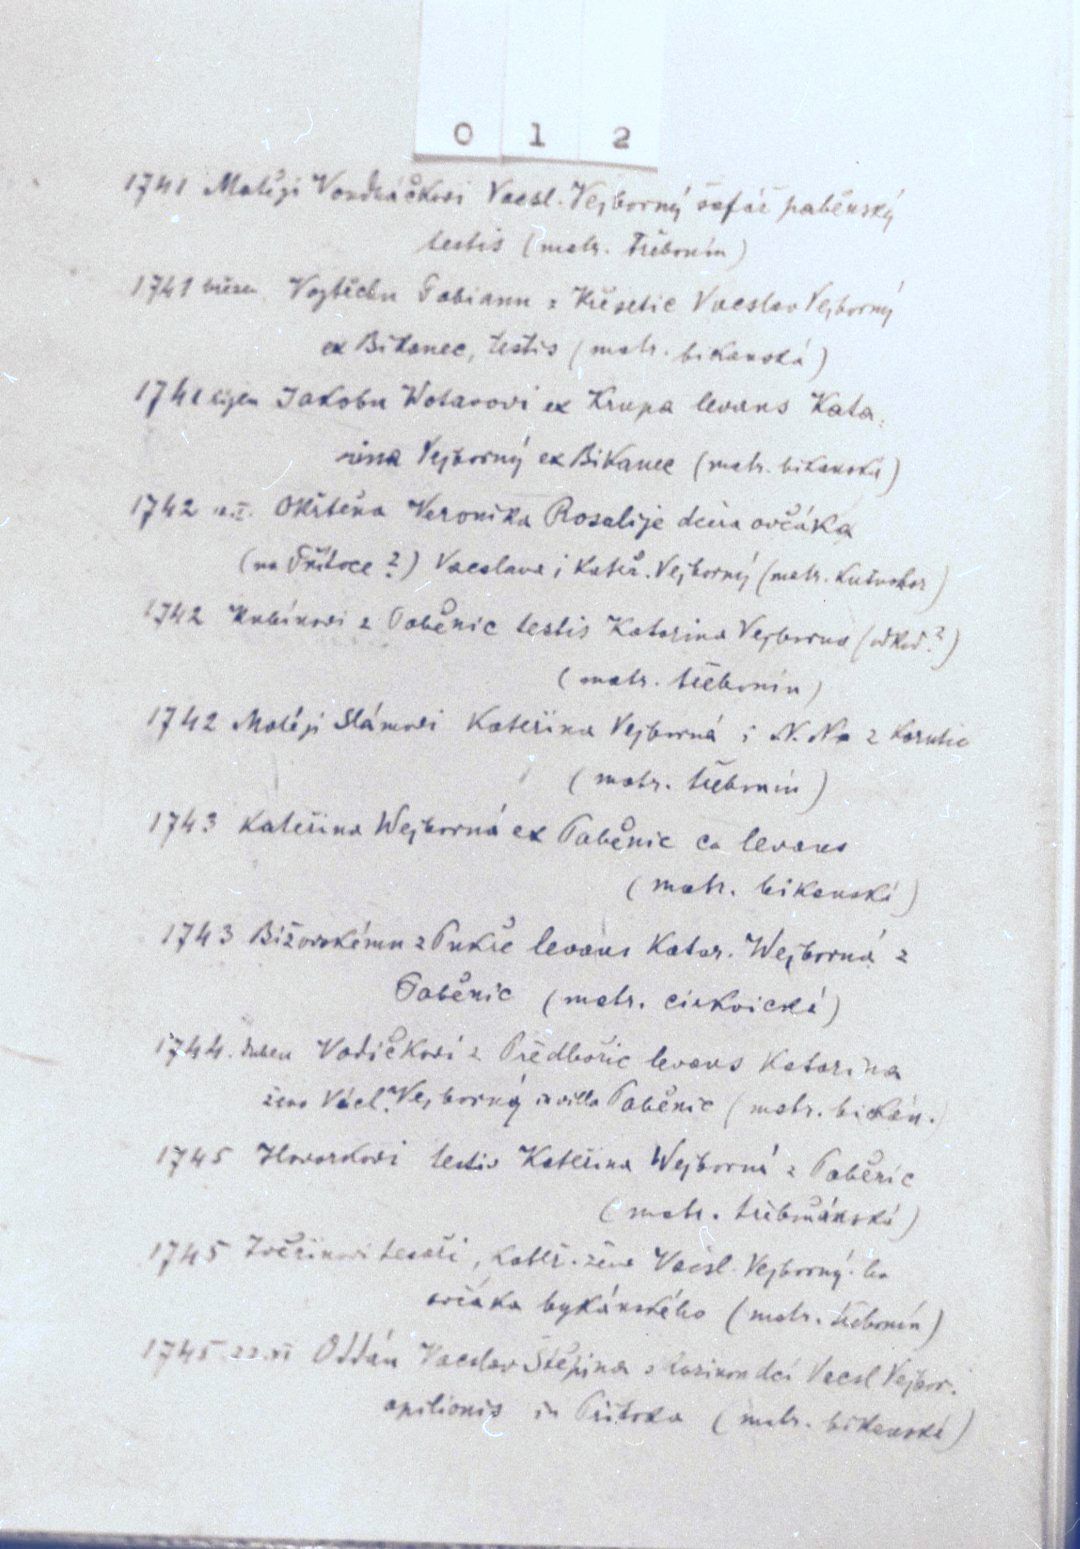 0 1 2
1741 Matěji Vondráčkovi Vacsl. Vejborný šafář paběnský
testis (matr. Třebonín)
1741 březen Vojtěchu Fabianu z Křesetic Vacslav Vejborný
ex Bikanec, testis (matr. bikanská)
1741 říjen Jakobu Wotavovi ex Krupa levans Kata-
rina Vejborný ex Bikanec (matr. bikanská)
1742 Okřtěna Veronika Rosalije dcera ovčáka
(na Přítoce?) Vacslava i Kateř. Vejborný (matr. kutnohor)
1742 Kubínovi z Paběnic testis Katarina Vejborna (odkud?)
(matr. třebonín)
1742 Matěji Slámovi Kateřina Vejborná i N. Na z
(matr. třebonín)
1743 Kateřina Wejborná ex Paběnic ca levans
(matr. bikanská)
1743 Bižovskému z levans Katar. Wejborná z
Paběnic (matr. církvická)
1744. duben Vodičkovi z Předbořic levans Katarina
žena Václ. Vejborný in villa Paběnic (matr. bickán.)
1745 Havorkovi testis Kateřina Wejborná z Paběnic
(matr. třebonínská)
1745 Zvěřinovi tesaři, Kateř. žena Vacsl. Vejborný-ho
ovčáka bykánského (matr. třebonín)
1745 22.XI Oddán Vacslav Štěpina s dcí Vacsl Vejbor.
opilionis in Přítoka (matr. bikanská)